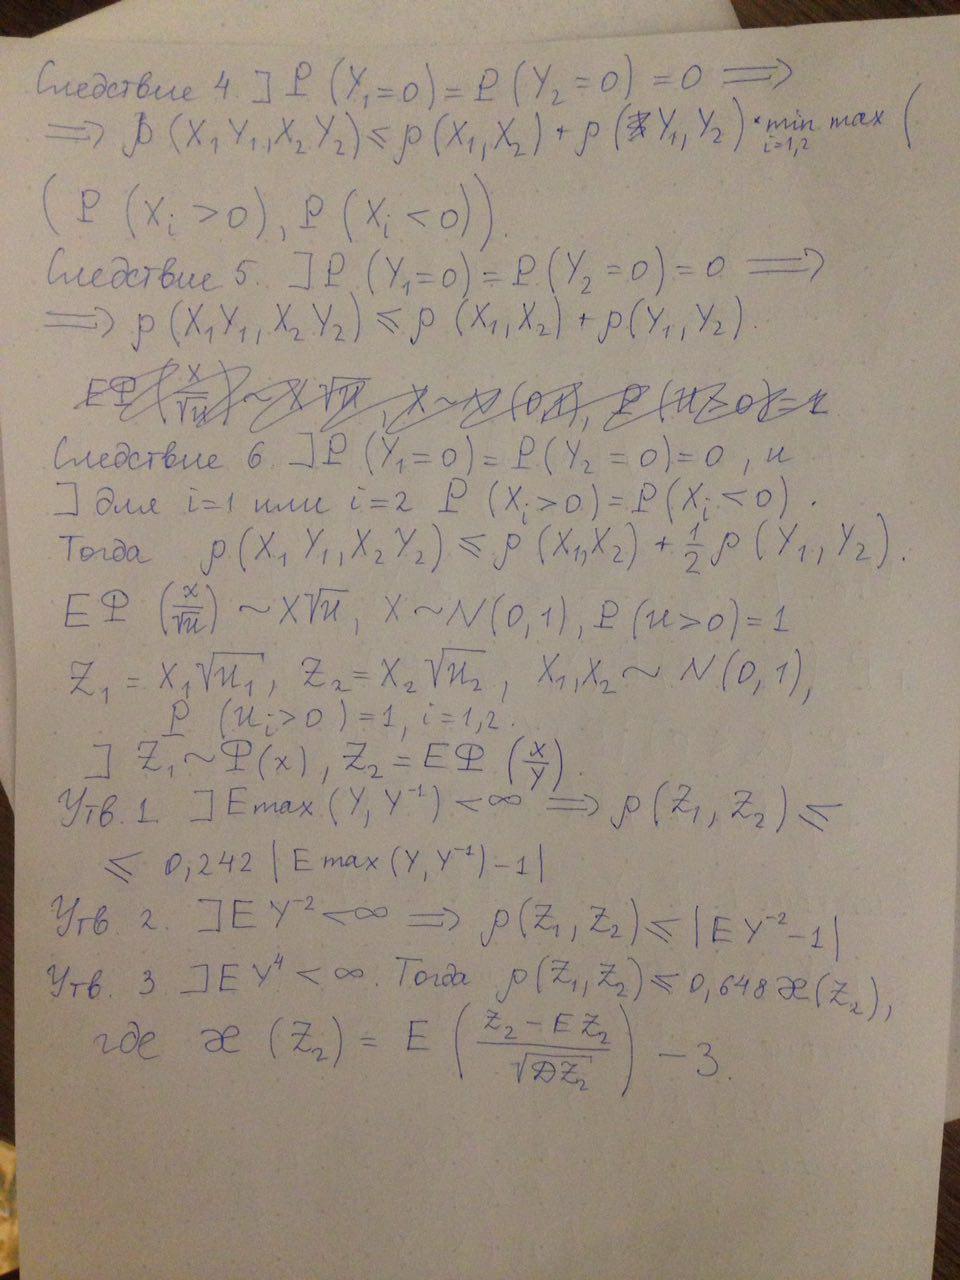 Следствие 4. ] P (Y₁=0) = P (Y₂=0) = 0 ⟹
⟹ ρ (X₁Y₁, X₂Y₂) ≤ ρ (X₁, X₂) + ρ (Y₁, Y₂) · min_{i=1,2} max (
( P (X_i > 0), P (X_i < 0)).
Следствие 5. ] P (Y₁=0) = P (Y₂=0) = 0 ⟹
⟹ ρ (X₁Y₁, X₂Y₂) ≤ ρ (X₁, X₂) + ρ (Y₁, Y₂).
EΦ (x/√u) ~ X√u, X ~ N (0,1), P (u>0)=1
Следствие 6. ] P (Y₁=0) = P (Y₂=0)=0, и
] для i=1 или i=2 P (X_i>0) = P (X_i<0).
Тогда ρ (X₁Y₁, X₂Y₂) ≤ ρ (X₁,X₂) + 1/2 ρ (Y₁, Y₂).
EΦ (x/√u) ~ X√u, X ~ N (0,1), P (u>0)=1
Z₁ = X₁√u₁, Z₂ = X₂√u₂, X₁,X₂ ~ N (0,1),
P (u_i>0)=1, i=1,2.
] Z₁ ~ Φ(x), Z₂ = EΦ (x/Y).
Утв. 1. ] E max (Y, Y⁻¹) < ∞ ⟹ ρ (Z₁, Z₂) ≤
≤ 0,242 |E max (Y, Y⁻¹) - 1|
Утв. 2. ] E Y⁻² < ∞ ⟹ ρ (Z₁, Z₂) ≤ |E Y⁻² - 1|
Утв. 3 ] E Y⁴ < ∞. Тогда ρ (Z₁, Z₂) ≤ 0,648 æ (Z₂),
где æ (Z₂) = E ((Z₂ - EZ₂)/√DZ₂) - 3.